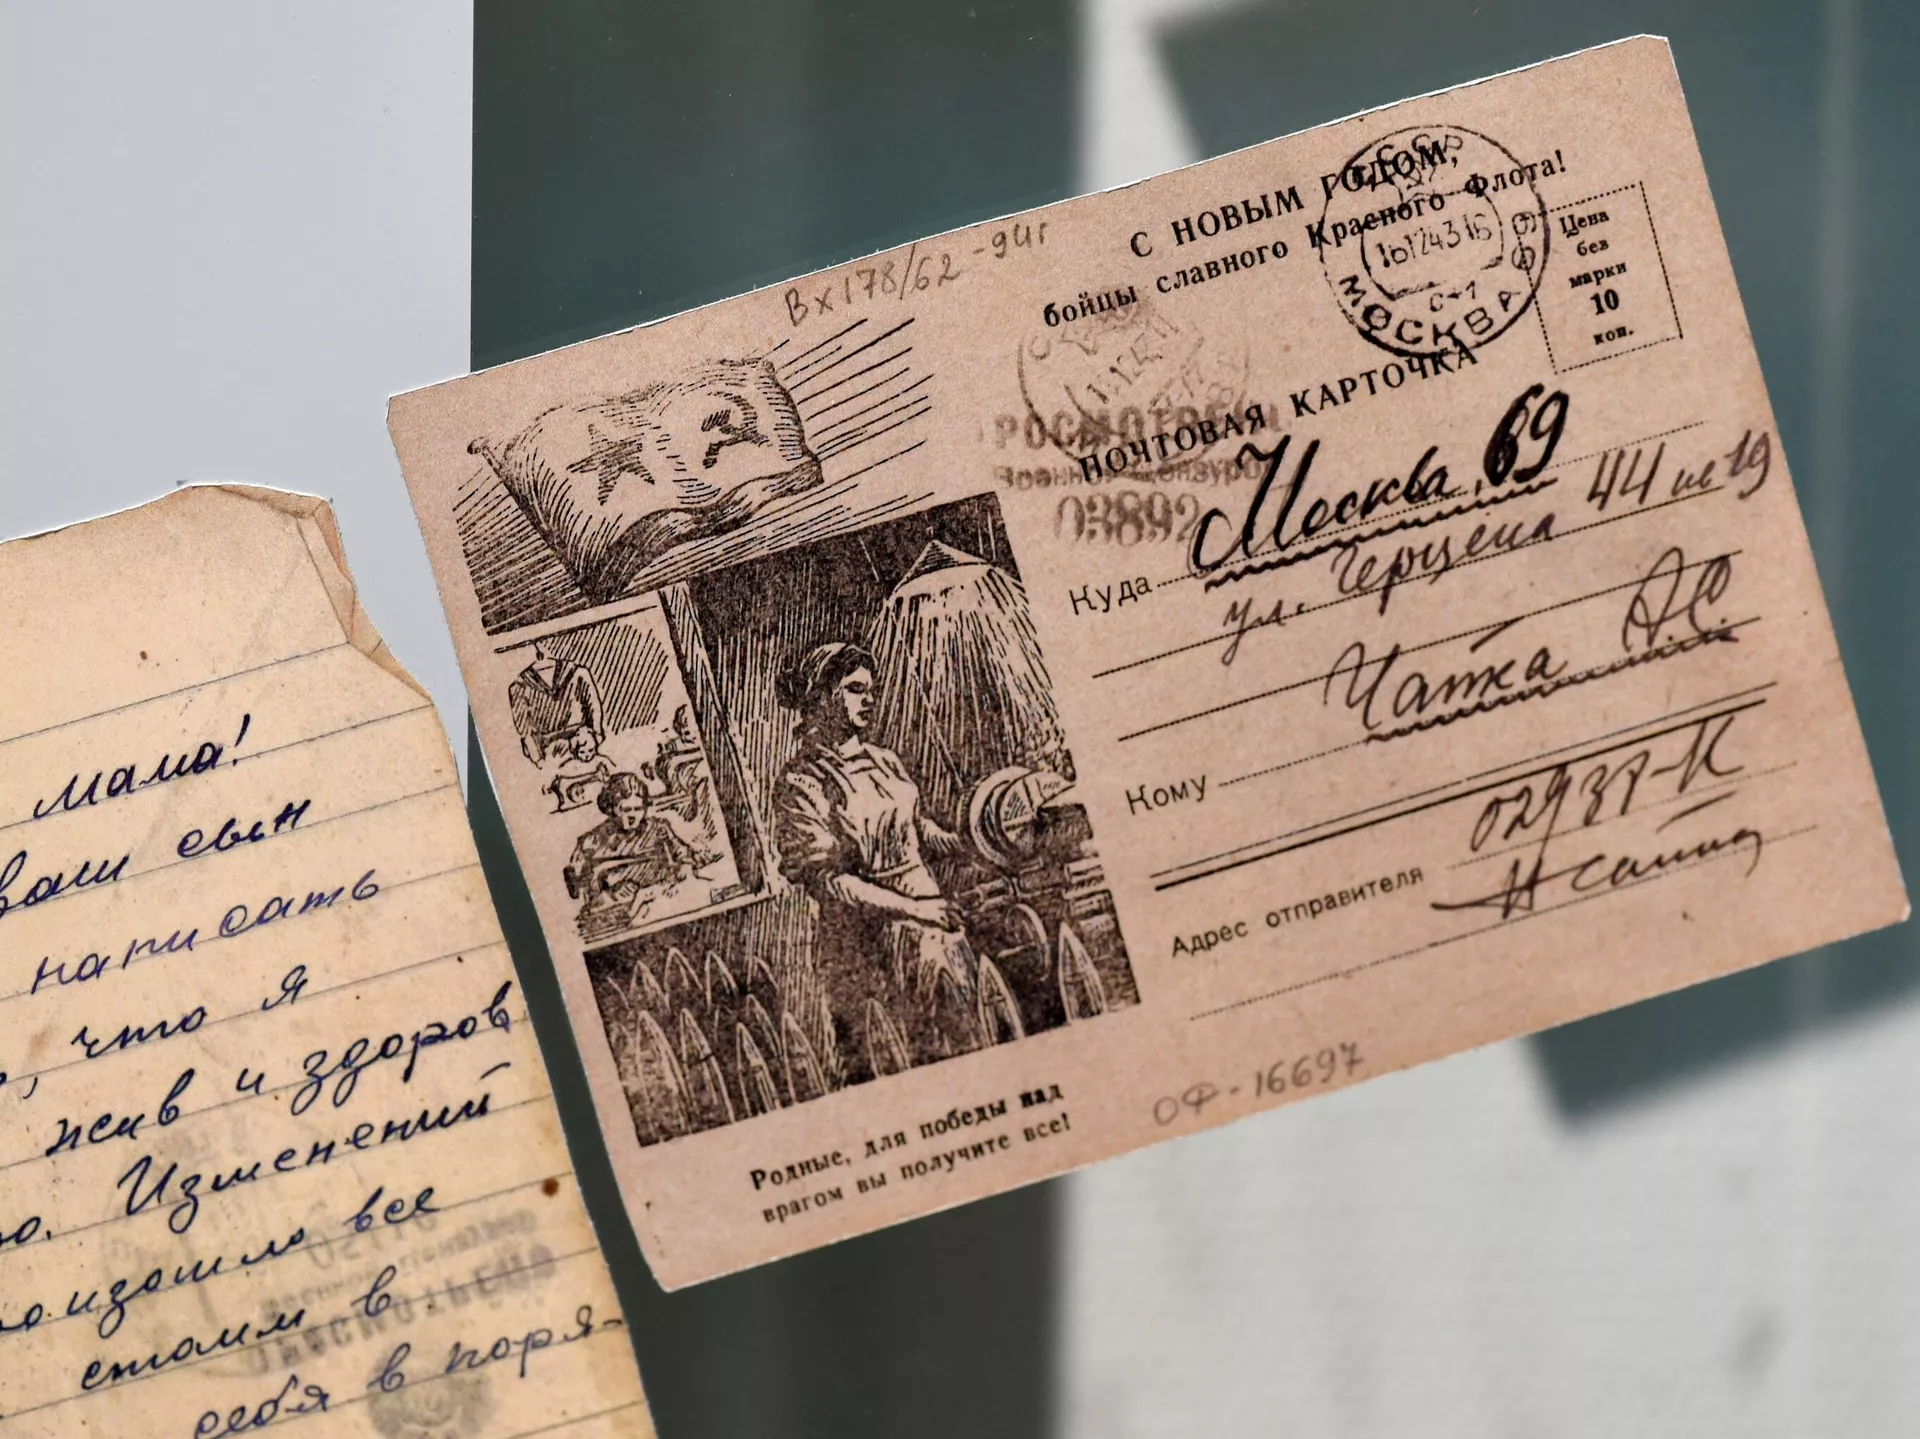 мама!
ваш сын
написать
, что я
жив и здоров
Изменений
все
стоим в
себя в поря-
Вх 178/62 -94г
С НОВЫМ ГОДОМ,
бойцы славного Красного Флота!
СССР
МОСКВА
Цена
без
марки
10
коп.
ПОЧТОВАЯ КАРТОЧКА
Военной Цензурой
03892
Куда Москва, 69
ул. Герцена 44 кв 19
Кому
Адрес отправителя
ОФ-16697
Родные, для победы над
врагом вы получите все!